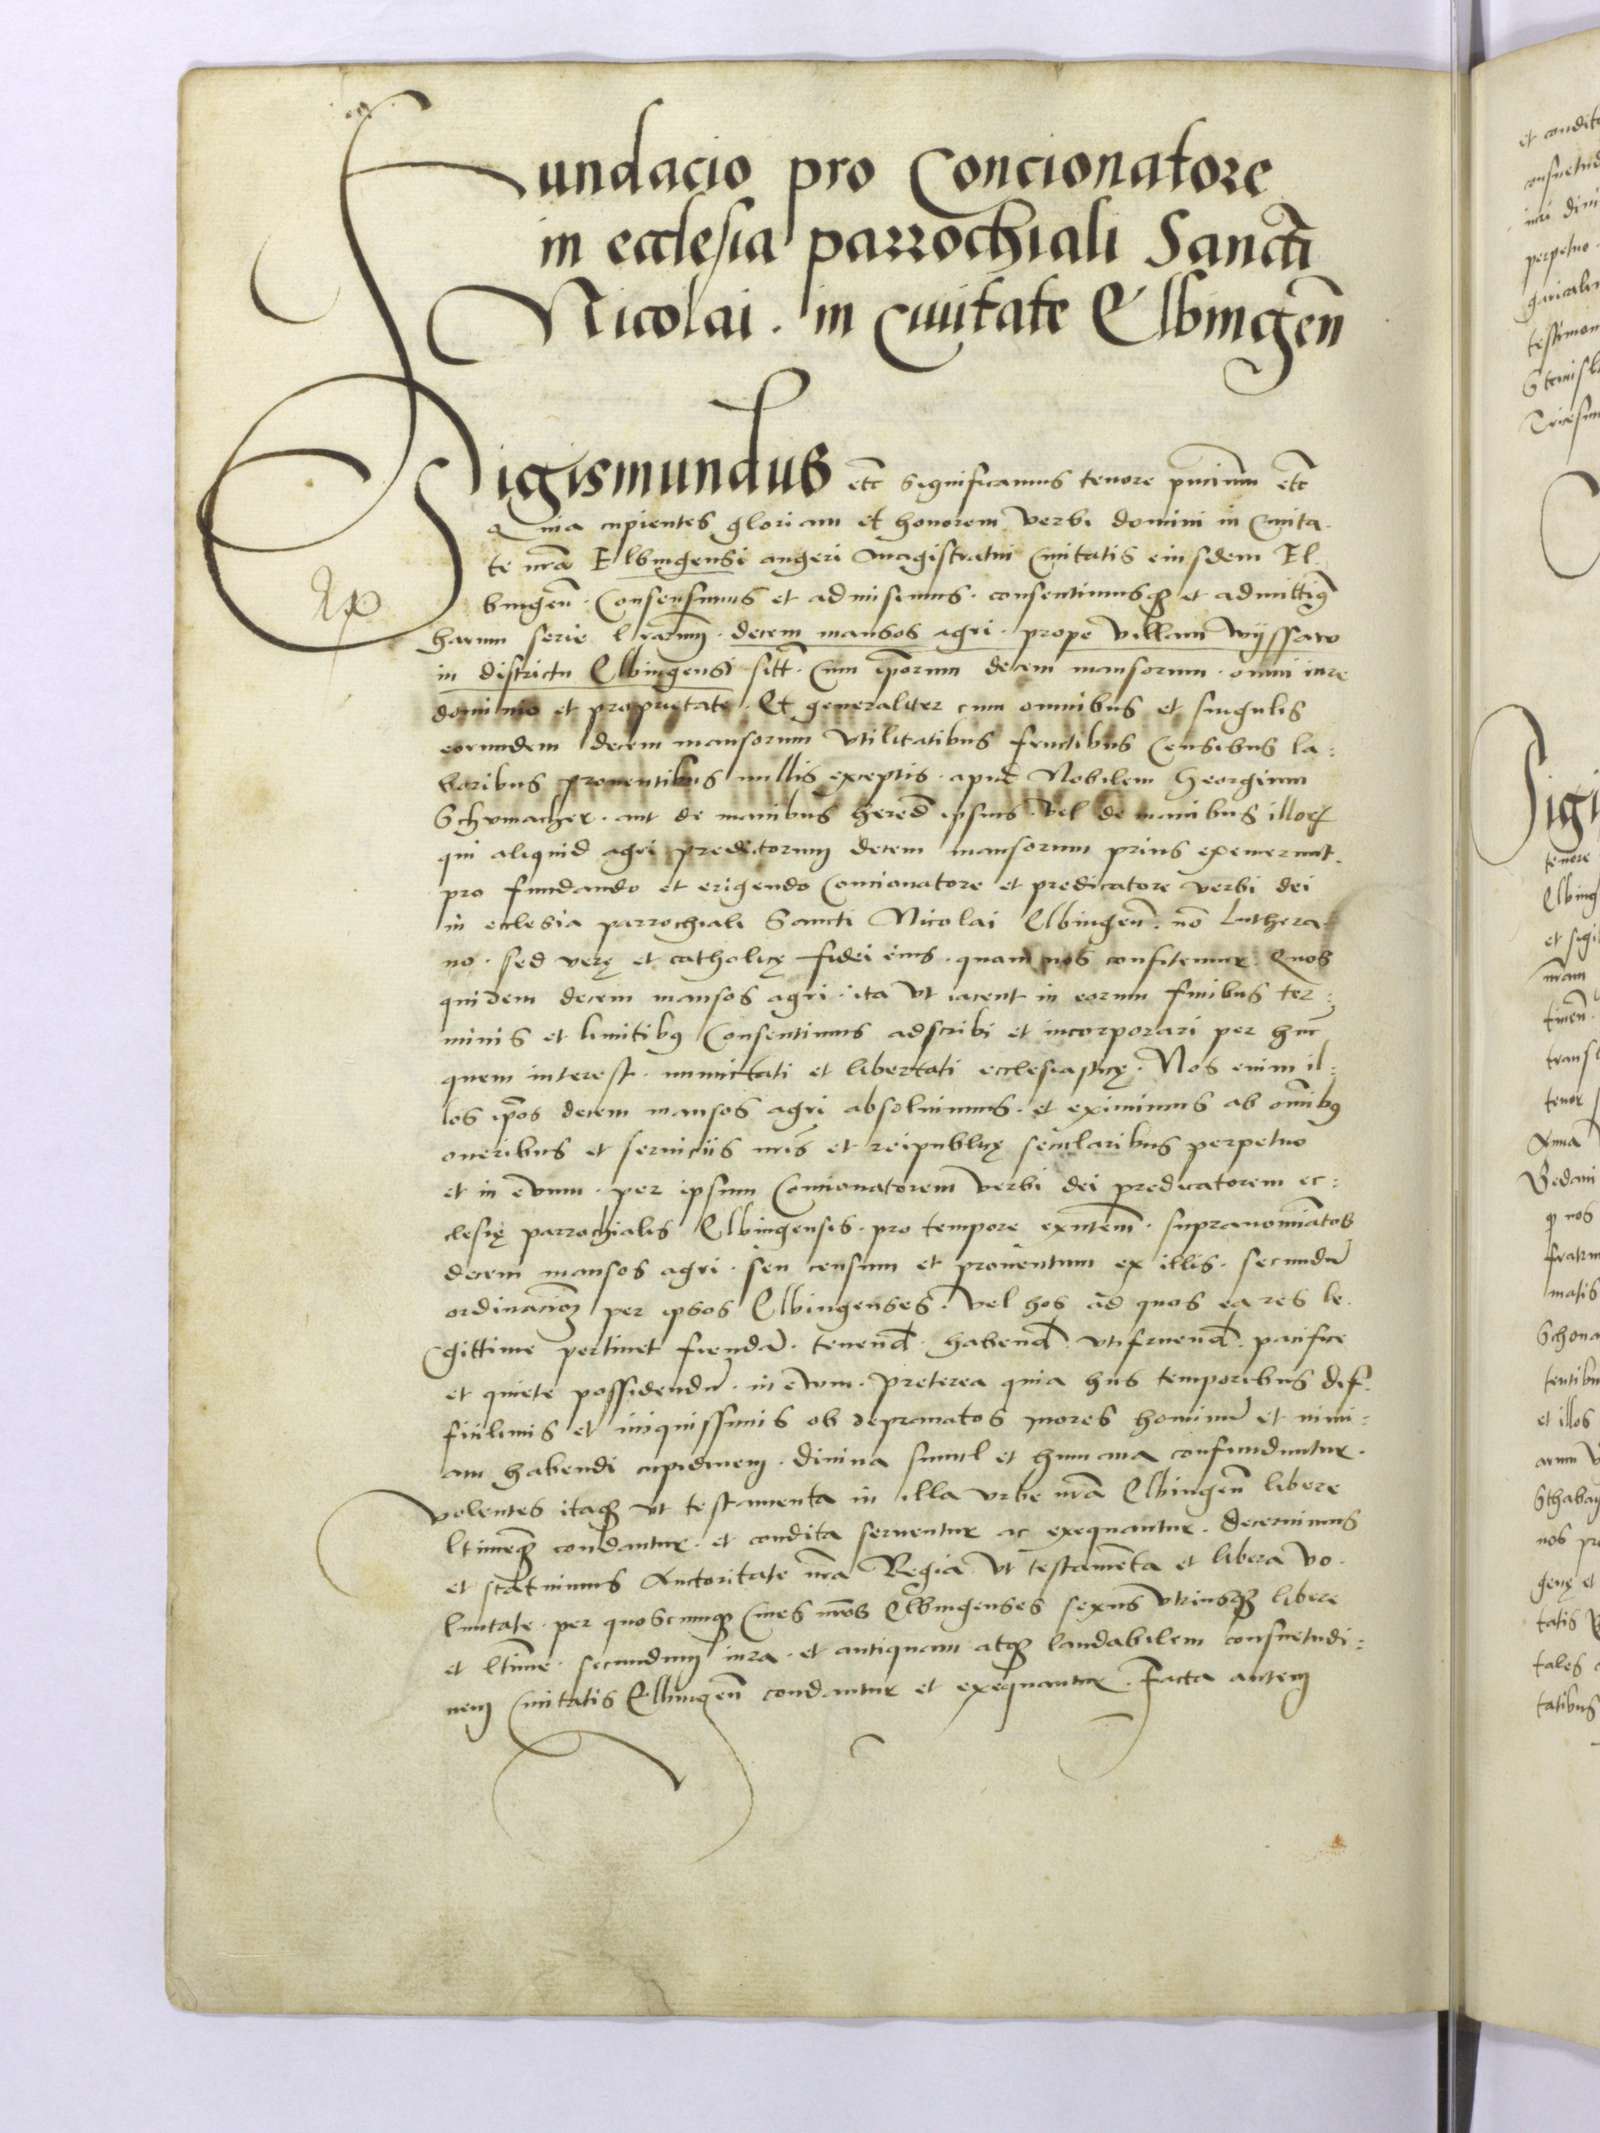 Fundacio pro Concionatore
in ecclesia parrochiali Sancti
Nicolai . in Civitate Elbingen̄
Sigismundus etc̄ Significamus tenore pn̄cium etc̄
Quia cupientes gloriam et honorem verbi domini in Civita-
te nr̄a Elbingensi augeri Magistratui Civitatis eiusdem El-
bingen̄ . Consensimus et admisimus . consentimusqꝫ et admittimꝰ
harum serie lr̄arum . decem mansos agri . prope villam Wyssaw
in districtu Elbingensi sitt̄ . Cum ip̄orum decem mansorum . omni iure
dominio et proprietate . Et generaliter cum omnibus et singulis
eorundem decem mansorum Vtilitatibus fructibus Censibus la:
boribus proventibus nullis exceptis . apud Nobilem Georgium
Schvmacher . aut de manibus hered̄ ipsius . vel de manibus illorꝝ
qui aliquid agri predictorum decem mansorum prius exemerunt .
pro fundando et erigendo Concionatore et predicatore verbi dei
in ecclesia parrochiali Sancti Nicolai Elbingen̄ . nō Luthera-
no . sed verę et catholicę fidei eius . quam nos confitemur . Quos
quidem decem mansos agri . ita vt iacent in eorum finibus ter:
minis et limitibꝰ Consentimus adscribi et incorporari per hūc
quem interest . immunitati et libertati ecclesiasticę . Nos enim il:
los ip̄os decem mansos agri absolvimus . et eximimus ab om̄ibꝰ
oneribus et serviciis nr̄is et reipublicę secularibus perpetuo
et in evum . per ipsum Concionatorem verbi dei predicatorem ec:
clesię parrochialis Elbingensis . pro tempore exn̄tem . supranomīatos
decem mansos agri . seu censum et proventum ex illis . secundū
ordinacionē per ipsos Elbingenses . vel hos ad quos ea res le-
gittime pertinet fiendā . tenend̄ . habend̄ vtifruend̄ . pacifice
et quiete possidendū . in evum . Preterea quia his temporibus dif-
ficilimis et iniquissimis ob depravatos mores hominū et nimi:
am habendi cupidinem . divina simul et humana confunduntur .
volentes itaqꝫ vt testamenta in illa vrbe nr̄a Elbingen̄ libere
ltimeqꝫ condantur . et condita serventur ac exequantur . decernimus
et statuimus Auctoritate nr̄a Regia vt testamēta et libera vo-
luntate . per quoscunqꝫ Cives nr̄os Elbingenses sexus vtriusqꝫ libere
et ltime . secundum iura . et antiquam atqꝫ laudabilem consuetudi:
nem Civitatis Elbingen̄ condantur et exequantur . Facta autem